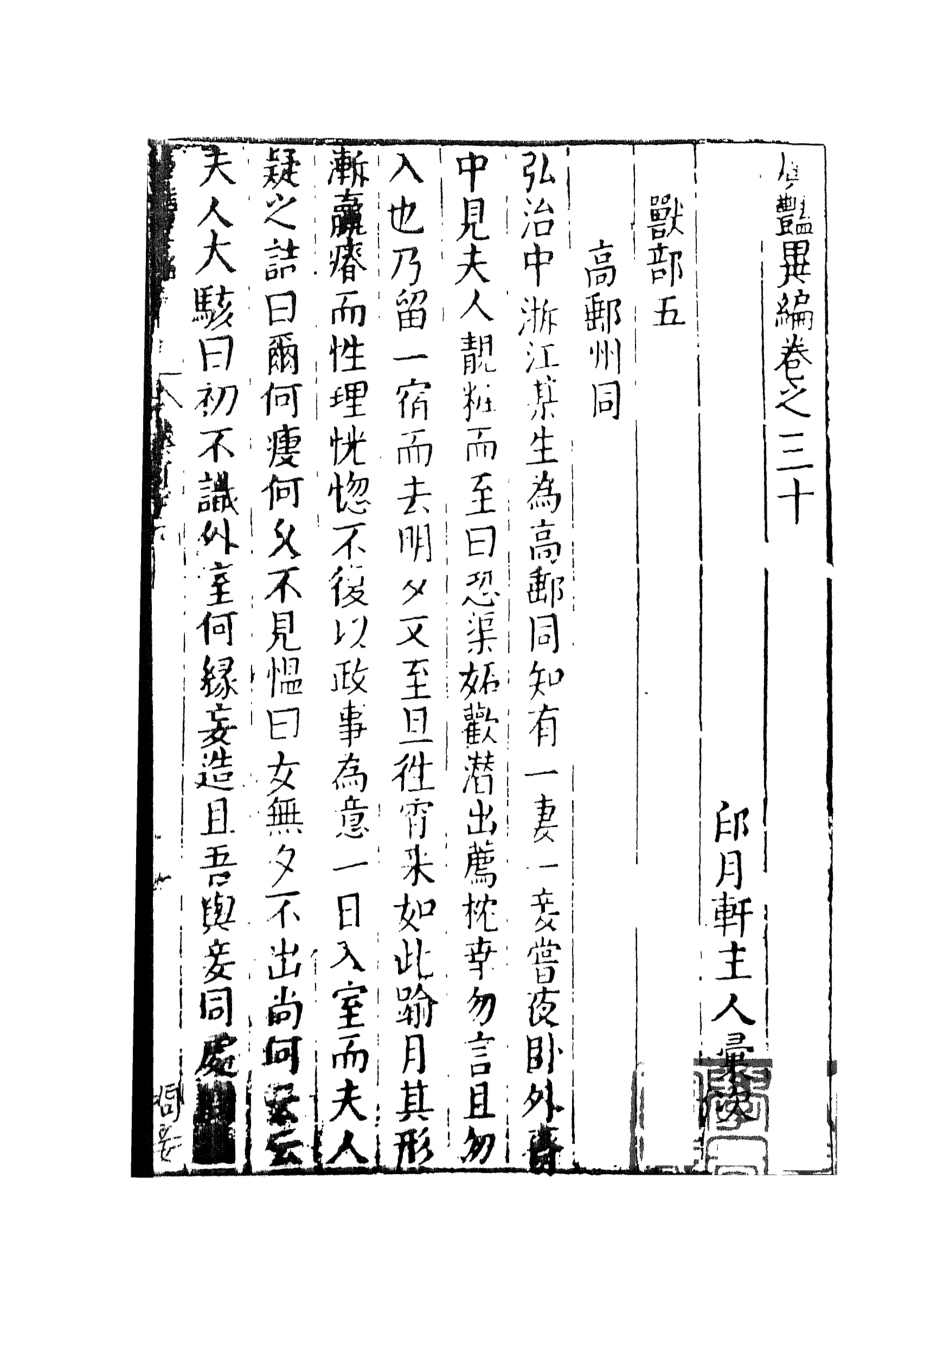 廣艷異編卷之三十
印月軒主人彙次
獸部五
高郵州同
弘治中浙江某生為高郵同知有一妻一妾嘗夜卧外齋
中見夫人靚粧而至曰恐渠妬歡潛出薦枕幸勿言且勿
入也乃留一宿而去明夕又至旦徃宵来如此踰月其形
漸羸瘠而性理恍惚不復以政事為意一日入室而夫人
疑之詰曰爾何瘦何久不見慍曰女無夕不出尚何云云
夫人大駭曰初不識外室何緣妄造且吾與妾同處